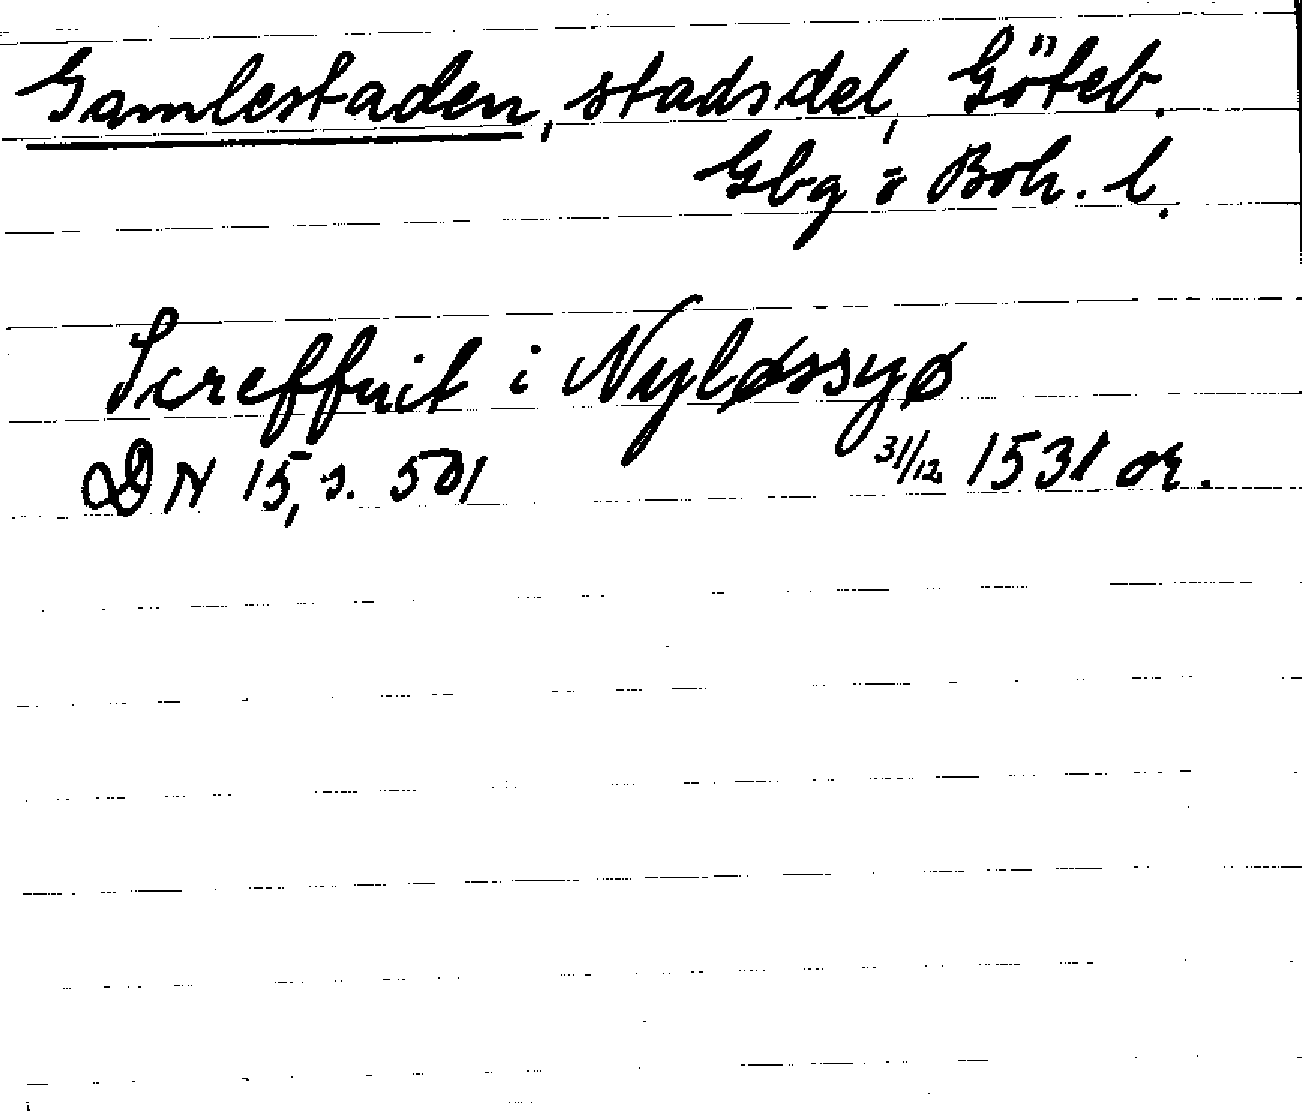 Gamlestaden, stadsdel, Göteb.
Gbg o Boh. l.
Screffuit i Nyløssyø
DN 15, s. 501 31/12 1531 or.